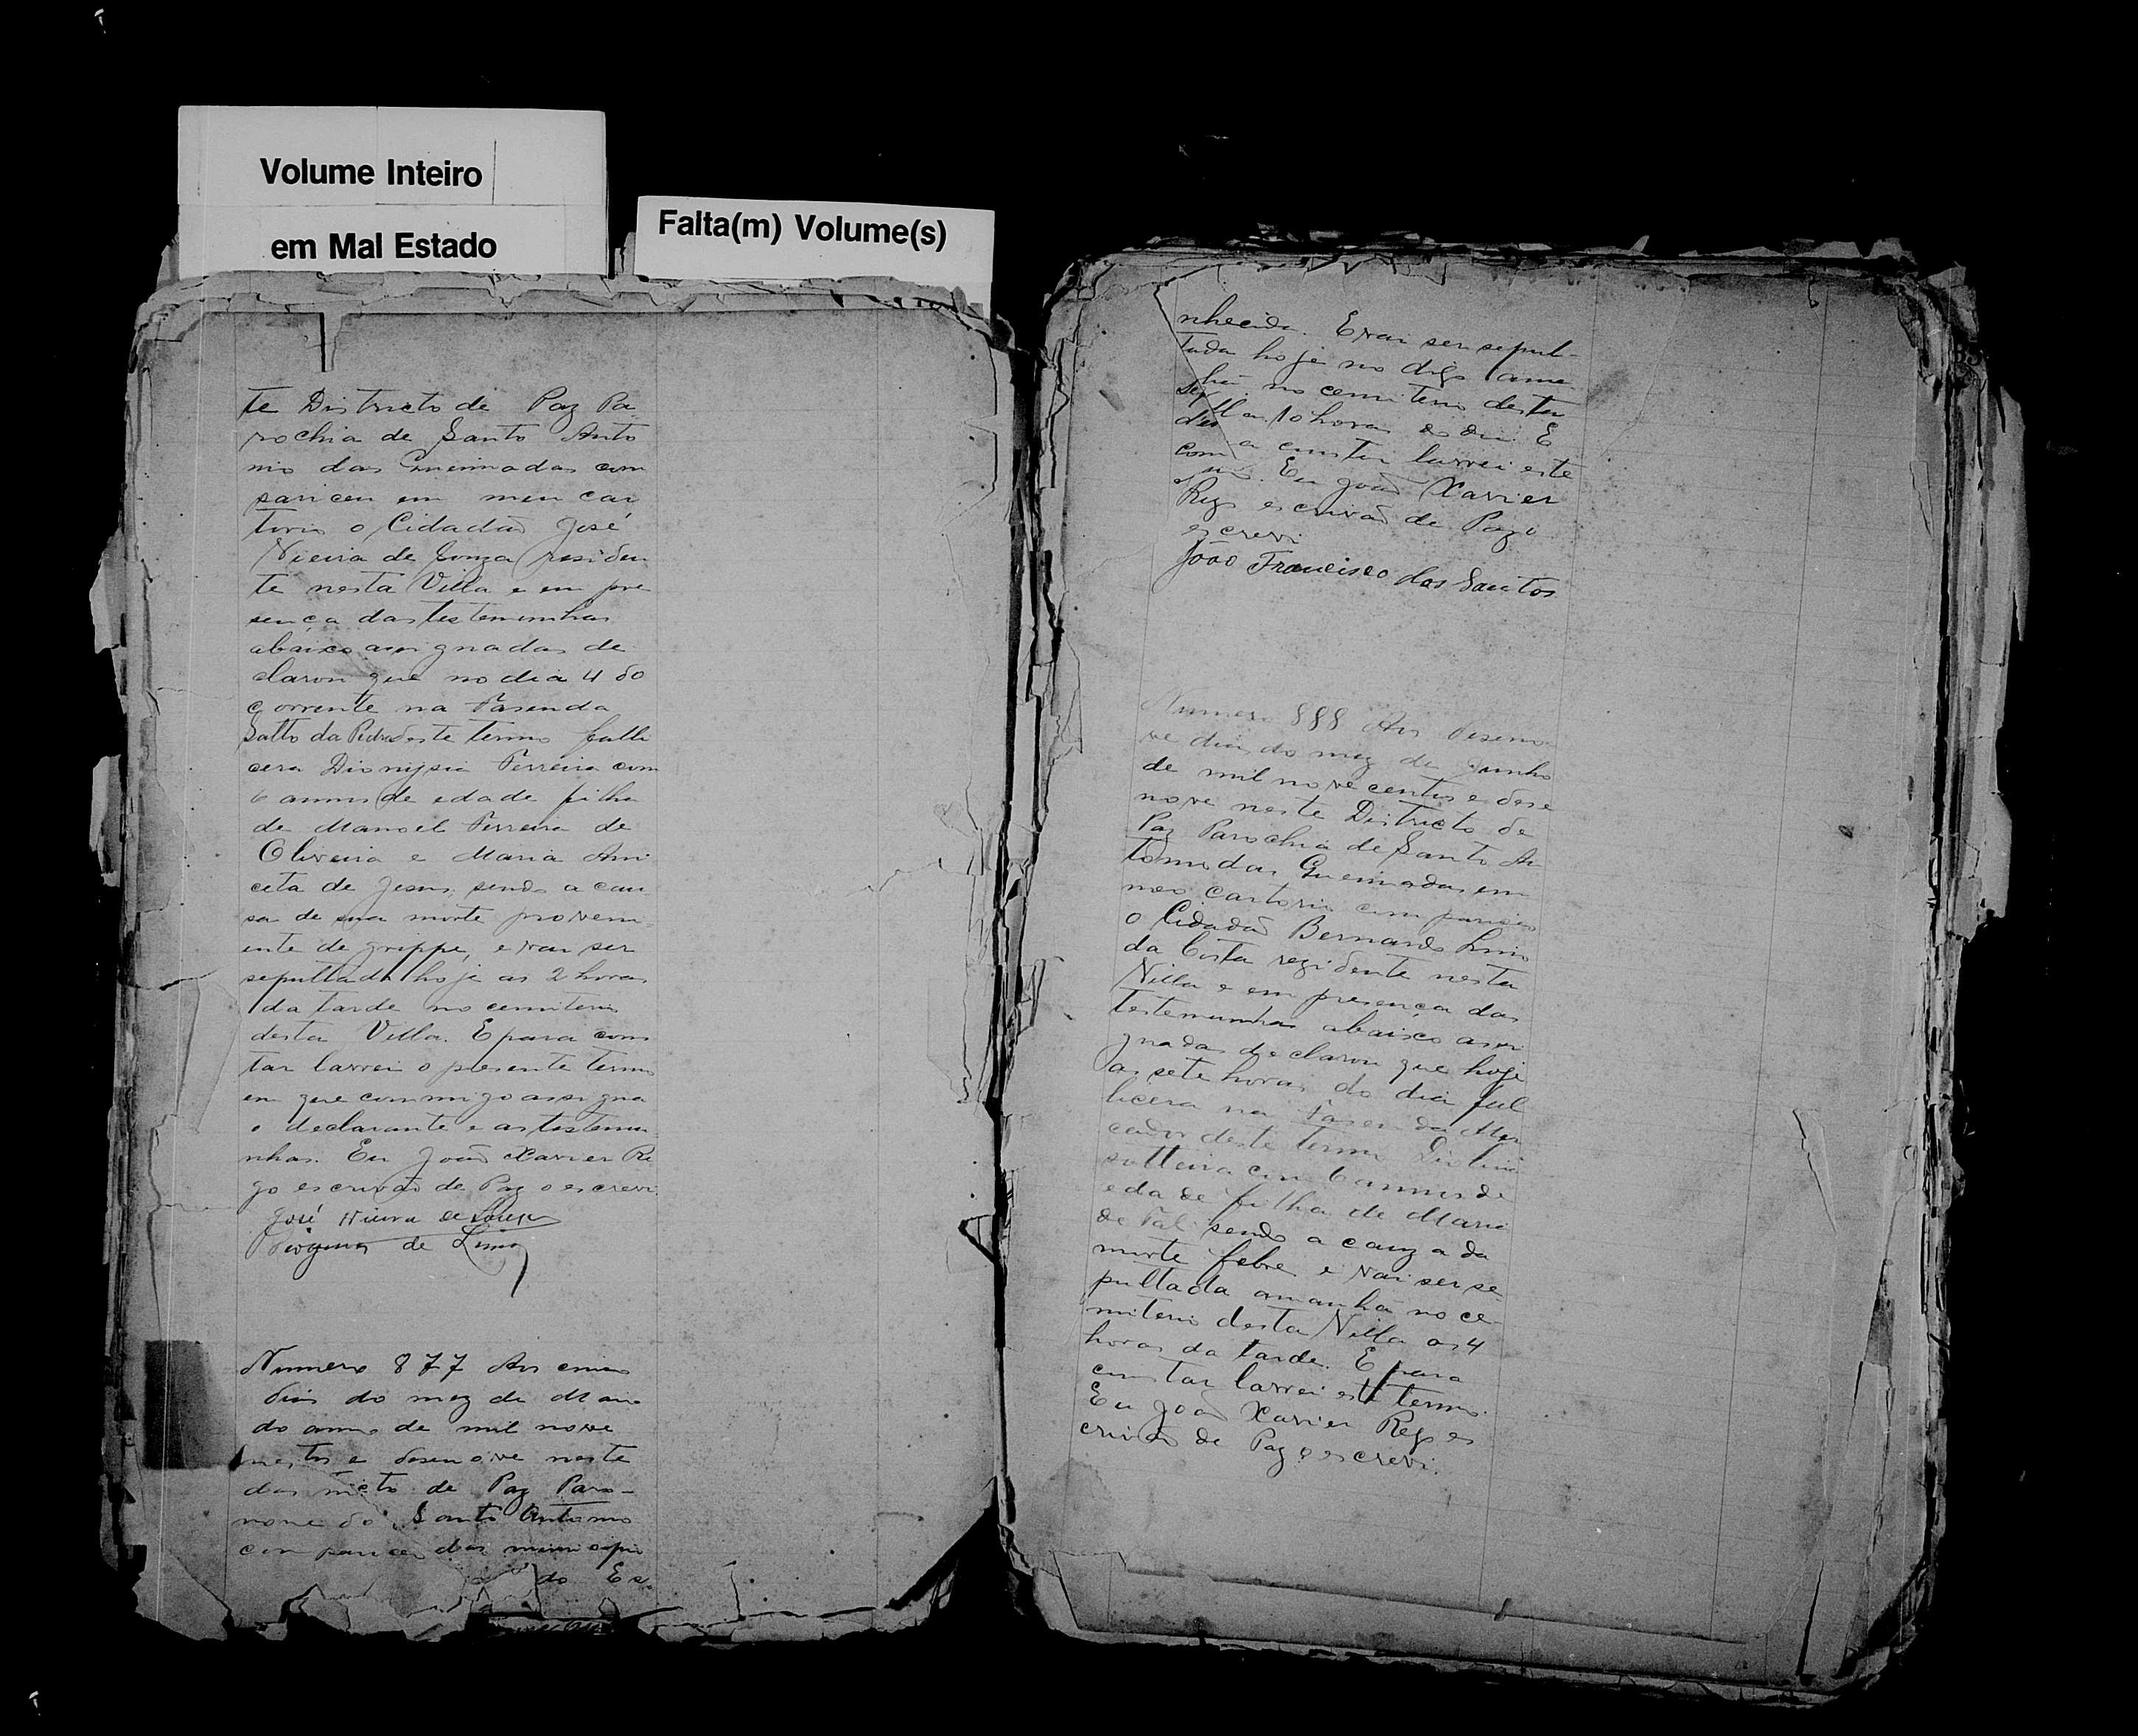 Volume Inteiro
em Mal Estado
Falta(m) Volume(s)
te Districto de Paz Pa
rochia de Santo Anto
nio das Queimadas com
pariceu em meu car
torio o Cidadão José
Vieira de Souza residen
te nesta Villa e em pre
sença das testemunhas
abaixo assignadas de
clarou que no dia 4 do
corrente na Fasenda
Salto da Pedra deste termo falli
cera Dionysia Ferreira com
6 annos de edade filha
de Manoel Ferreira de
Oliveira e Maria Ani
ceta de Jesus sendo a cau
sa de sua morte proveni
ente de grippe, e vai ser
sepultada hoje as 2 horas
da tarde no cemiterio
desta Villa. E para cons
tar lavrei o presente termo
em que commigo assigna
o declarante e as testemu
nhas. Eu João Xavier Re
go escrivão de Paz o escrevi.
José Vieira de Souza
de Lima
Numero 877 Aos cinco
dias do mez de Maio
do anno de mil nove
centos e desenove neste
districto de Paz Paro-
Santo Antonio
compareceu das municipio
do Es-
nhecida. E vai ser sepul-
tada hoje no digo ama
nhã no cemiterio desta
Villa 10 horas do dia E
a constar lavrei este
Eu João Xavier
Rego escrivão de Paz o
escrevi
João Francisco dos Santos
Numero 888 Aos deseno
ve dias do mez de Junho
de mil nove centos e dese
nove neste Districto de
Paz Parochia de Santo An
tonio das Queimadas em
meo cartorio compariceo
o Cidadão Bernardo Lino
da Costa rezidente nesta
Villa e em presença das
testemunhas abaixo assi
gnadas declarou que hoje
as sete horas do dia fal
licera na Fasenda Mer
cador deste termo
solteira com 6 annos de
edade filha de Maria
de Tal sendo a cauza da
morte febre e vai ser se-
pultada amanhã no ce-
miterio desta Villa as 4
horas da tarde. E para
constar lavrei este termo.
Eu João Xavier Rego es
crivão de Paz o escrevi.